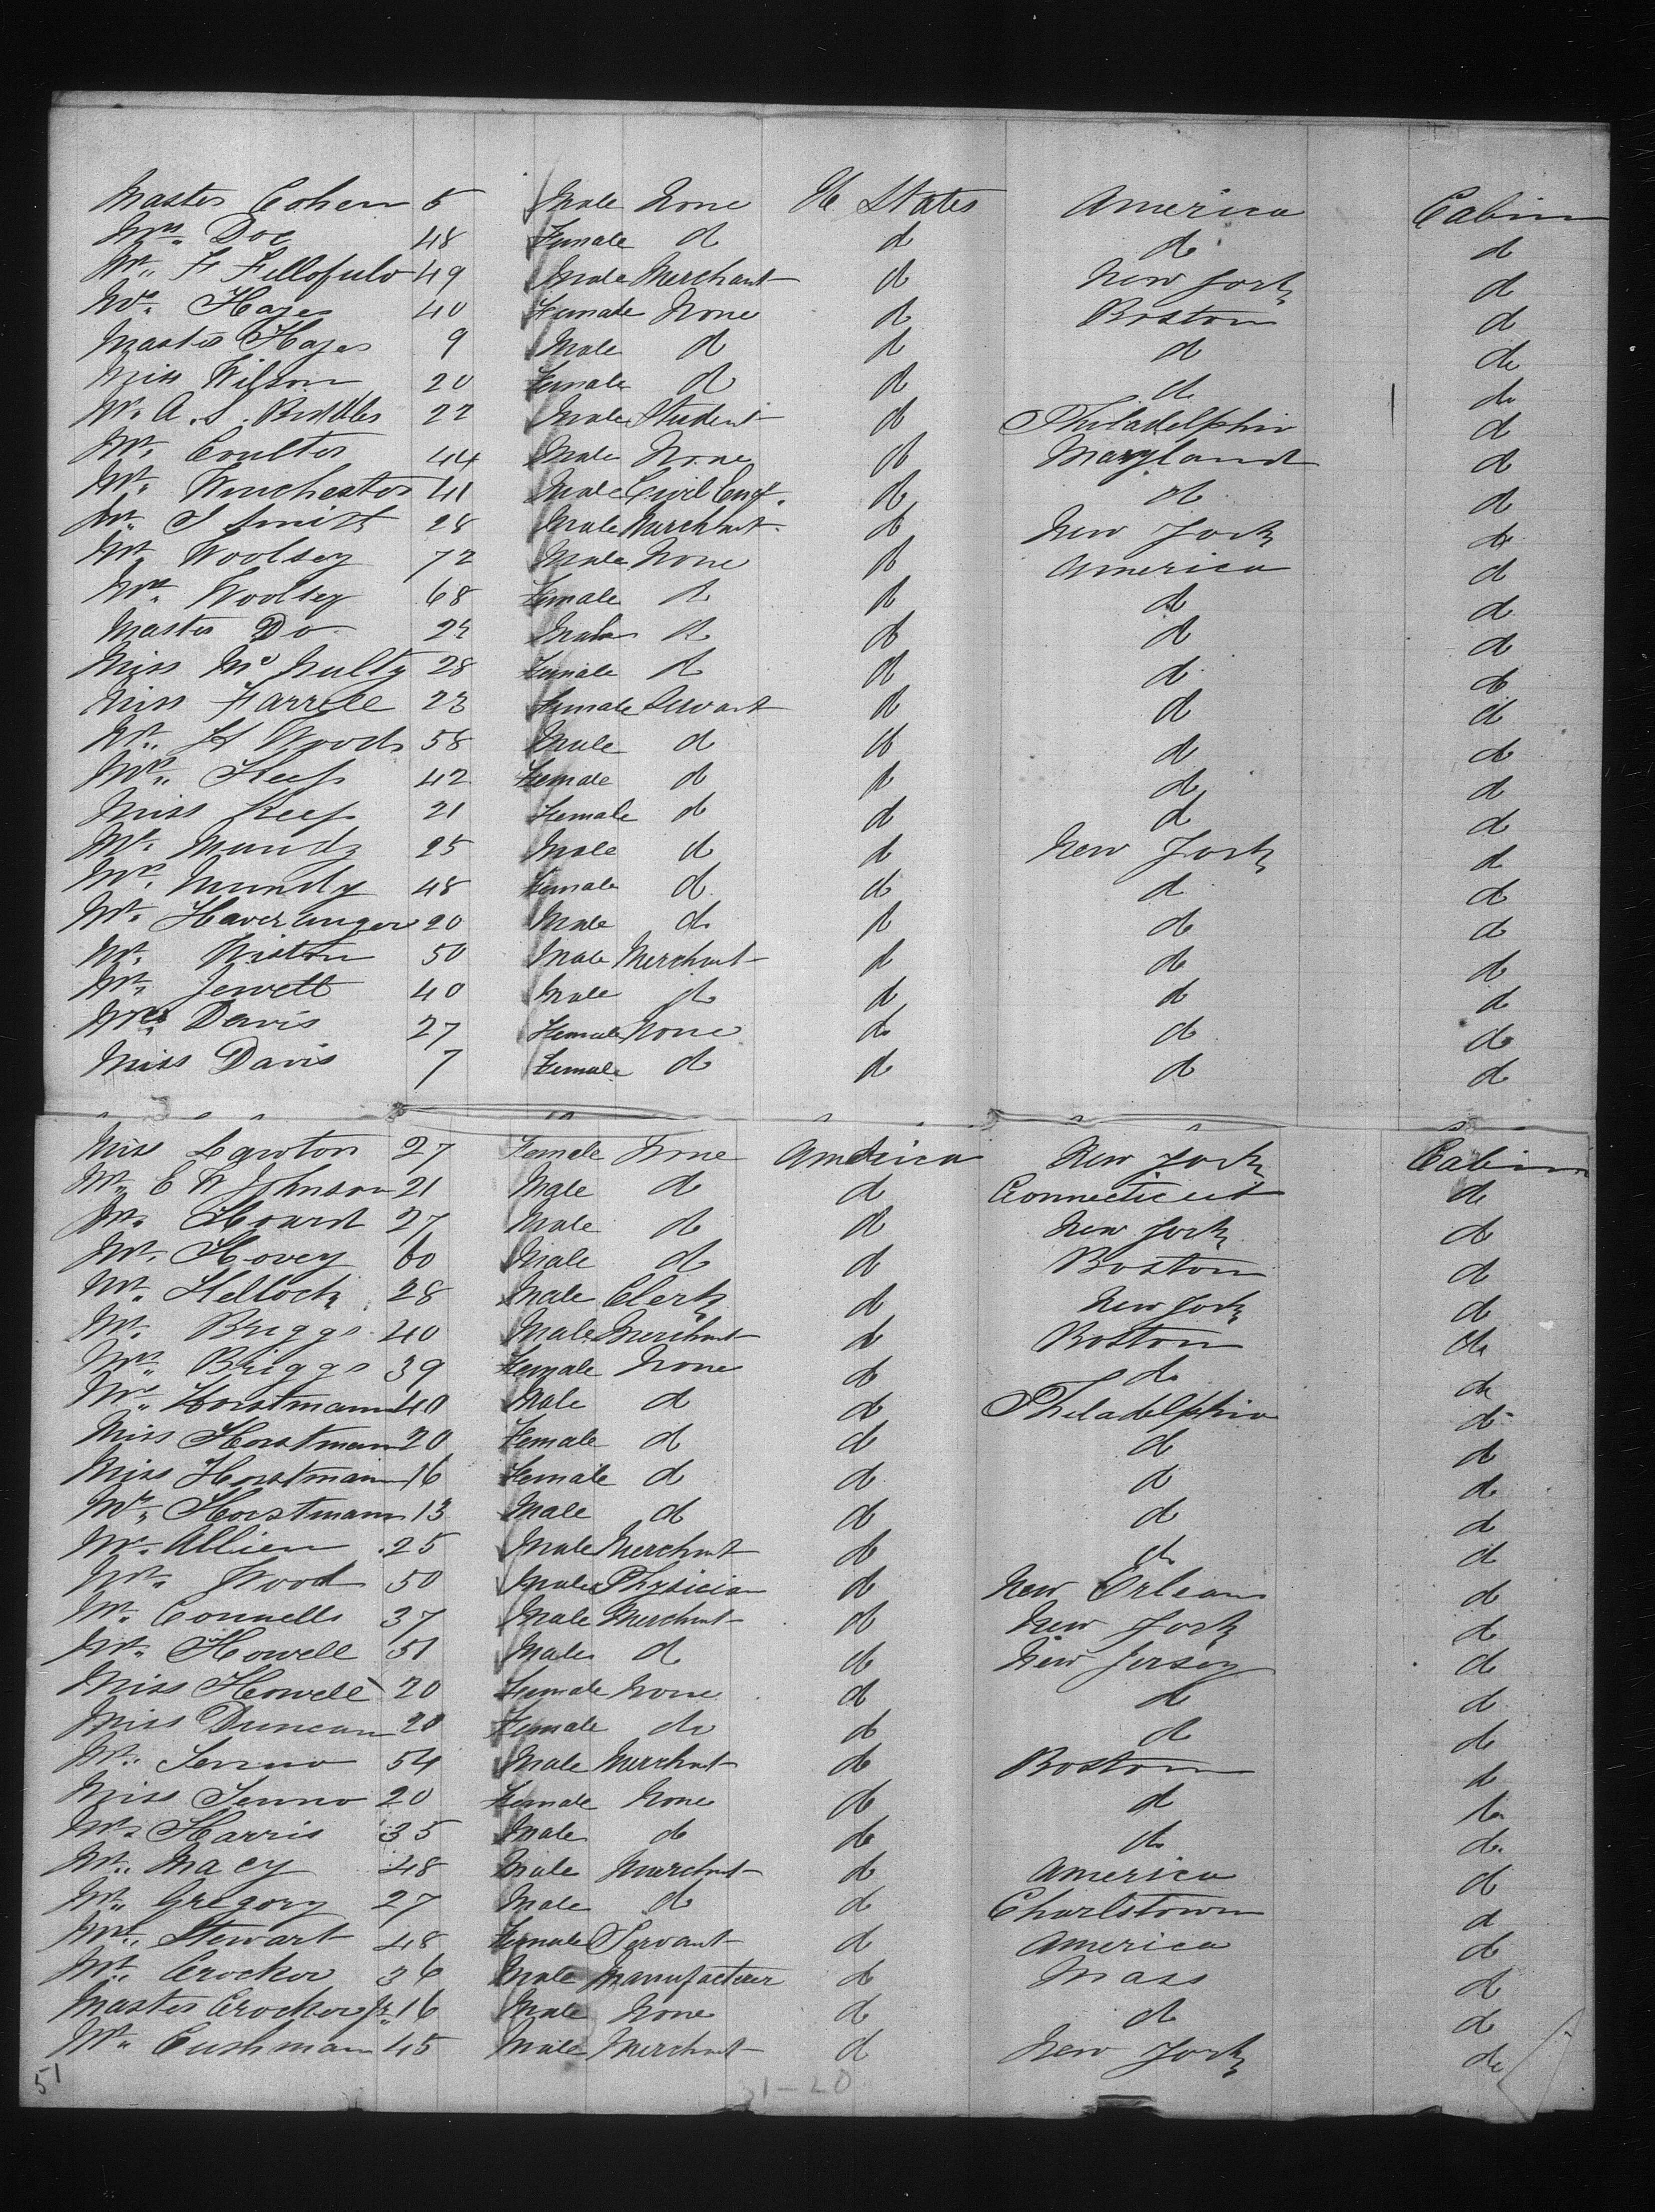 Master Cohen 5 Male None U. States America Cabin
Mrs. Doe 48 Female d d d d
Mr. F 49 Male Merchant d New York d
Mrs. Hayes 40 Female None d Boston d
Master Hayes 9 Male d d d do
Miss Wilson 20 Female d d d do
Mr. A. S. 22 Male Student d Philadelphia d
Mr. Coulter 44 Male None d Maryland d
Mr. Winchester 41 Male Civil Eng. d d d
Mr. J Smith 28 Male Merchant d New York d
Mr. Woolsey 72 Male None d America d
Mrs. Woolsey 68 Female d d d d
Master Do Male d d d d
Miss McNulty 28 Female d d d d
Miss Farrell 23 Female Servant d d d
Mr. H Woods 58 Male d d d d
Mrs. Keep 42 Female d d d d
Miss Keep 21 Female d d d d
Mr. Mundy 25 Male d d New York d
Mrs. Mundy 48 Female d d d d
Mr. 20 Male d d d d
Mr. 50 Male Merchant d d d
Mr. Jewett 40 Male d d d d
Mrs Davis 27 Female None d d do
Miss Davis 7 Female d d d d
Miss Lawton 27 Female None America New York Cabin
Mr. C W Johnson 21 Male d d Connecticut d
Mr. Howard 27 Male d d New York d
Mr. Hovey 60 Male d d Boston d
Mr. 28 Male Clerk d New York d
Mr. Briggs 40 Male Merchant d Boston do
Mrs. Briggs 39 Female None d d d
Mr. Horstmann 40 Male d d Philadelphia d
Miss Horstmann 20 Female d d d d
Miss Horstmann 16 Female d d d d
Mr. Horstmann 13 Male d d d d
Mr. Allien 25 Male Merchant d d d
Mr. Wood 50 Male Physician d New Orleans d
Mr. Connells 37 Male Merchant d New York d
Mr. Howell 51 Male d d New Jersey d
Miss Howell 20 Female None d d d
Miss Duncan 20 Female do d d d
Mr. 54 Male Merchant d Boston d
Miss 20 Female None d d
Mr. Harris 35 Male d d d d
Mr. Macy 48 Male Merchant d America d
Mr. Gregory 27 Male d d Charlstown d
Mrs. Stewart 48 Female Servant d America d
Mr. Crocker 36 Male Manufacturer d Mass d
Master Crocker Jr. 16 Male None d d d
Mr. Cushman 45 Male Merchant d New York do
51
31-20